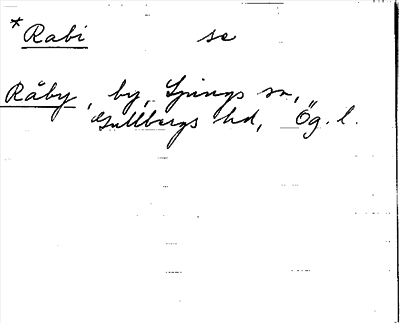 *Rabi se
Råby, by, Ljungs sn,
Gullbergs hd, Ög. l.